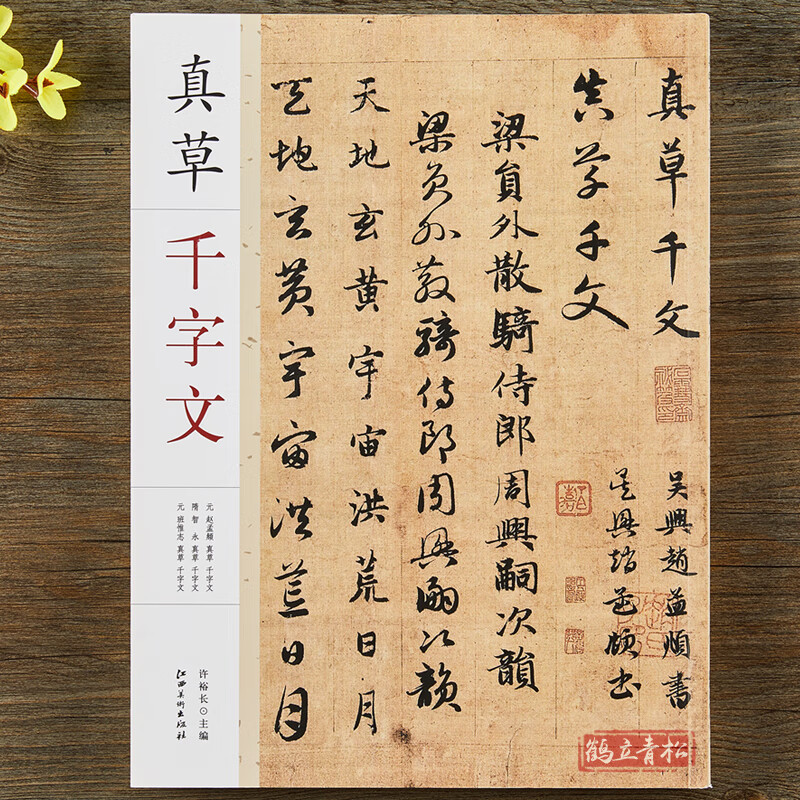 真草
千字文
元 赵孟頫 真草 千字文
隋 智永 真草 千字文
元 班惟志 真草 千字文
许裕长⊙主编
江西美術出版社
真草千文
吴興趙孟頫書
真草千文
吴興趙孟頫書
梁員外散騎侍郎周興嗣次韻
梁員外散騎侍郎周興嗣次韻
天地玄黄宇宙洪荒日月
天地玄黄宇宙洪荒日月
鹤立青松